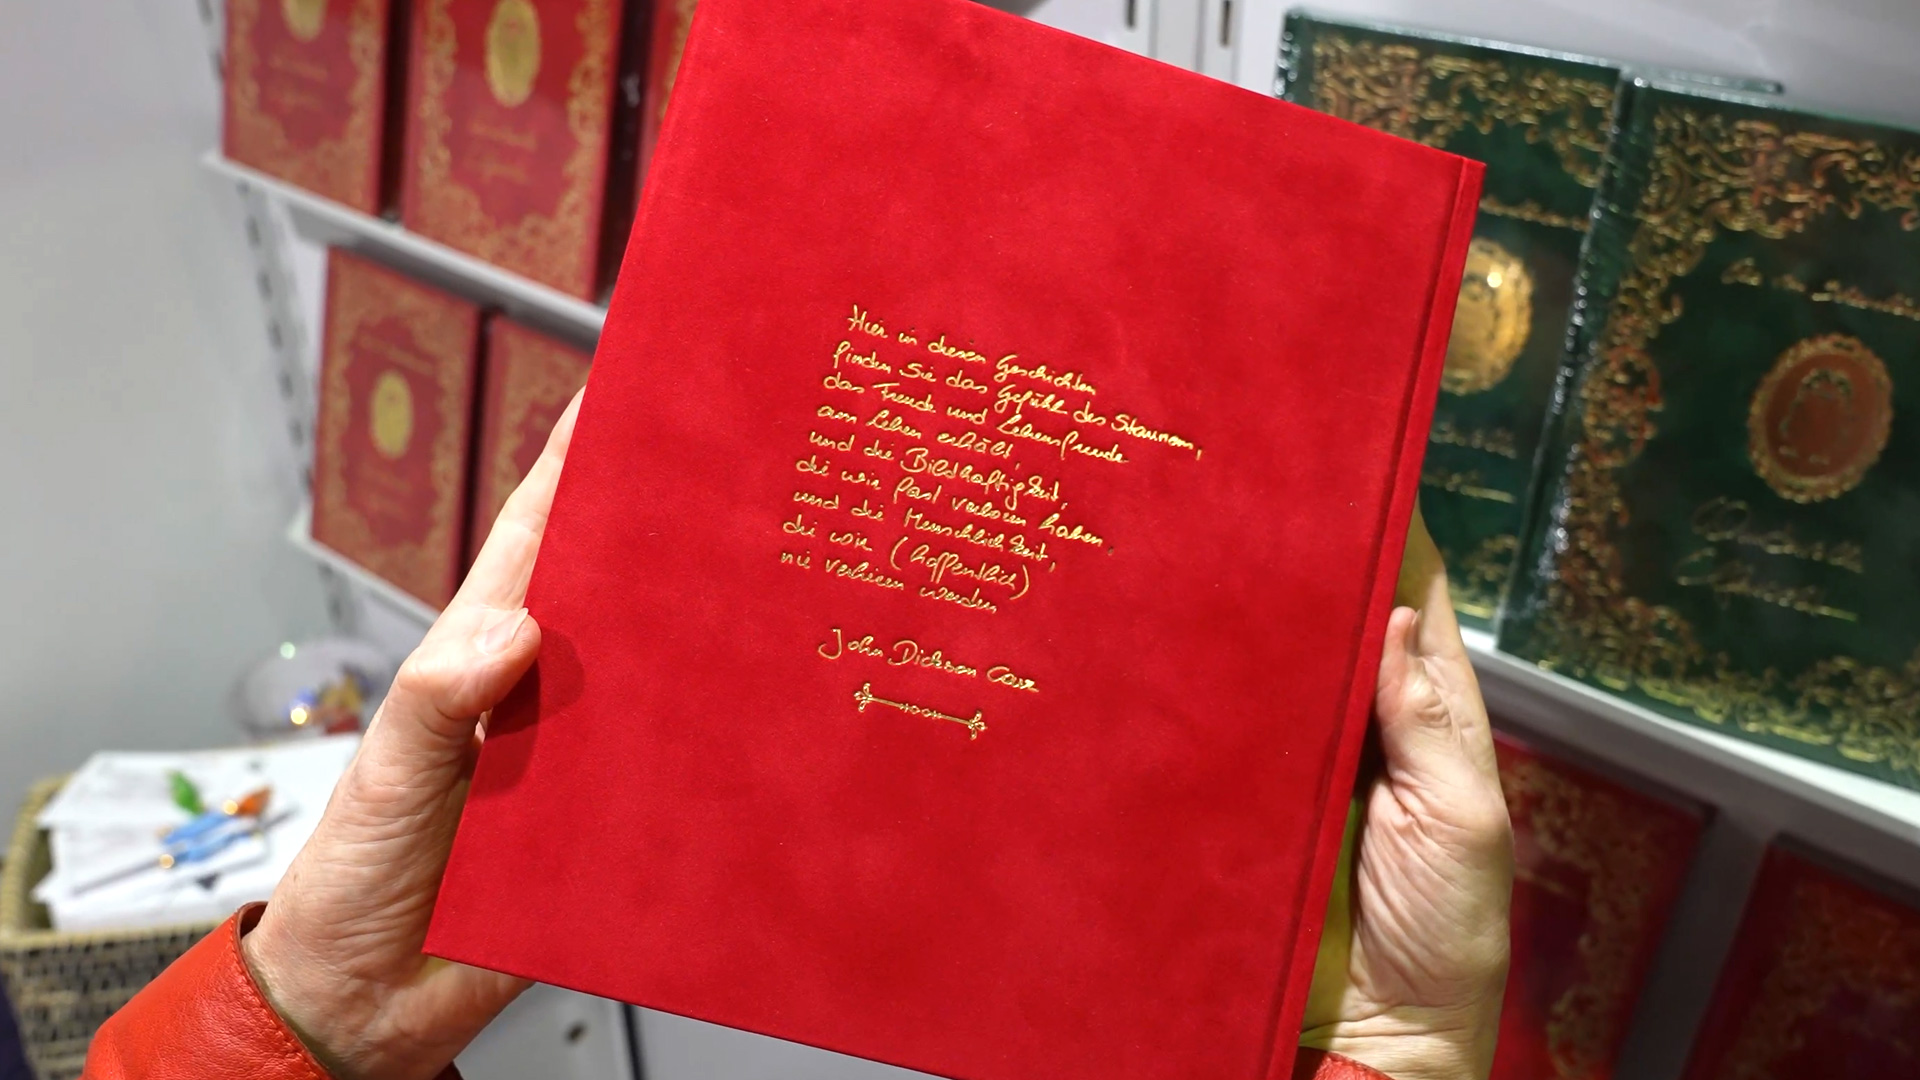 Hier in diesen Geschichten
finden Sie das Gefühl des Staunens,
das Freude und Lebensfreude
am Leben erhält,
und die Bildhaftigkeit,
die wir fast verloren haben,
und die Menschlichkeit,
die wir (hoffentlich)
nie verlieren werden
John Dickson Carr